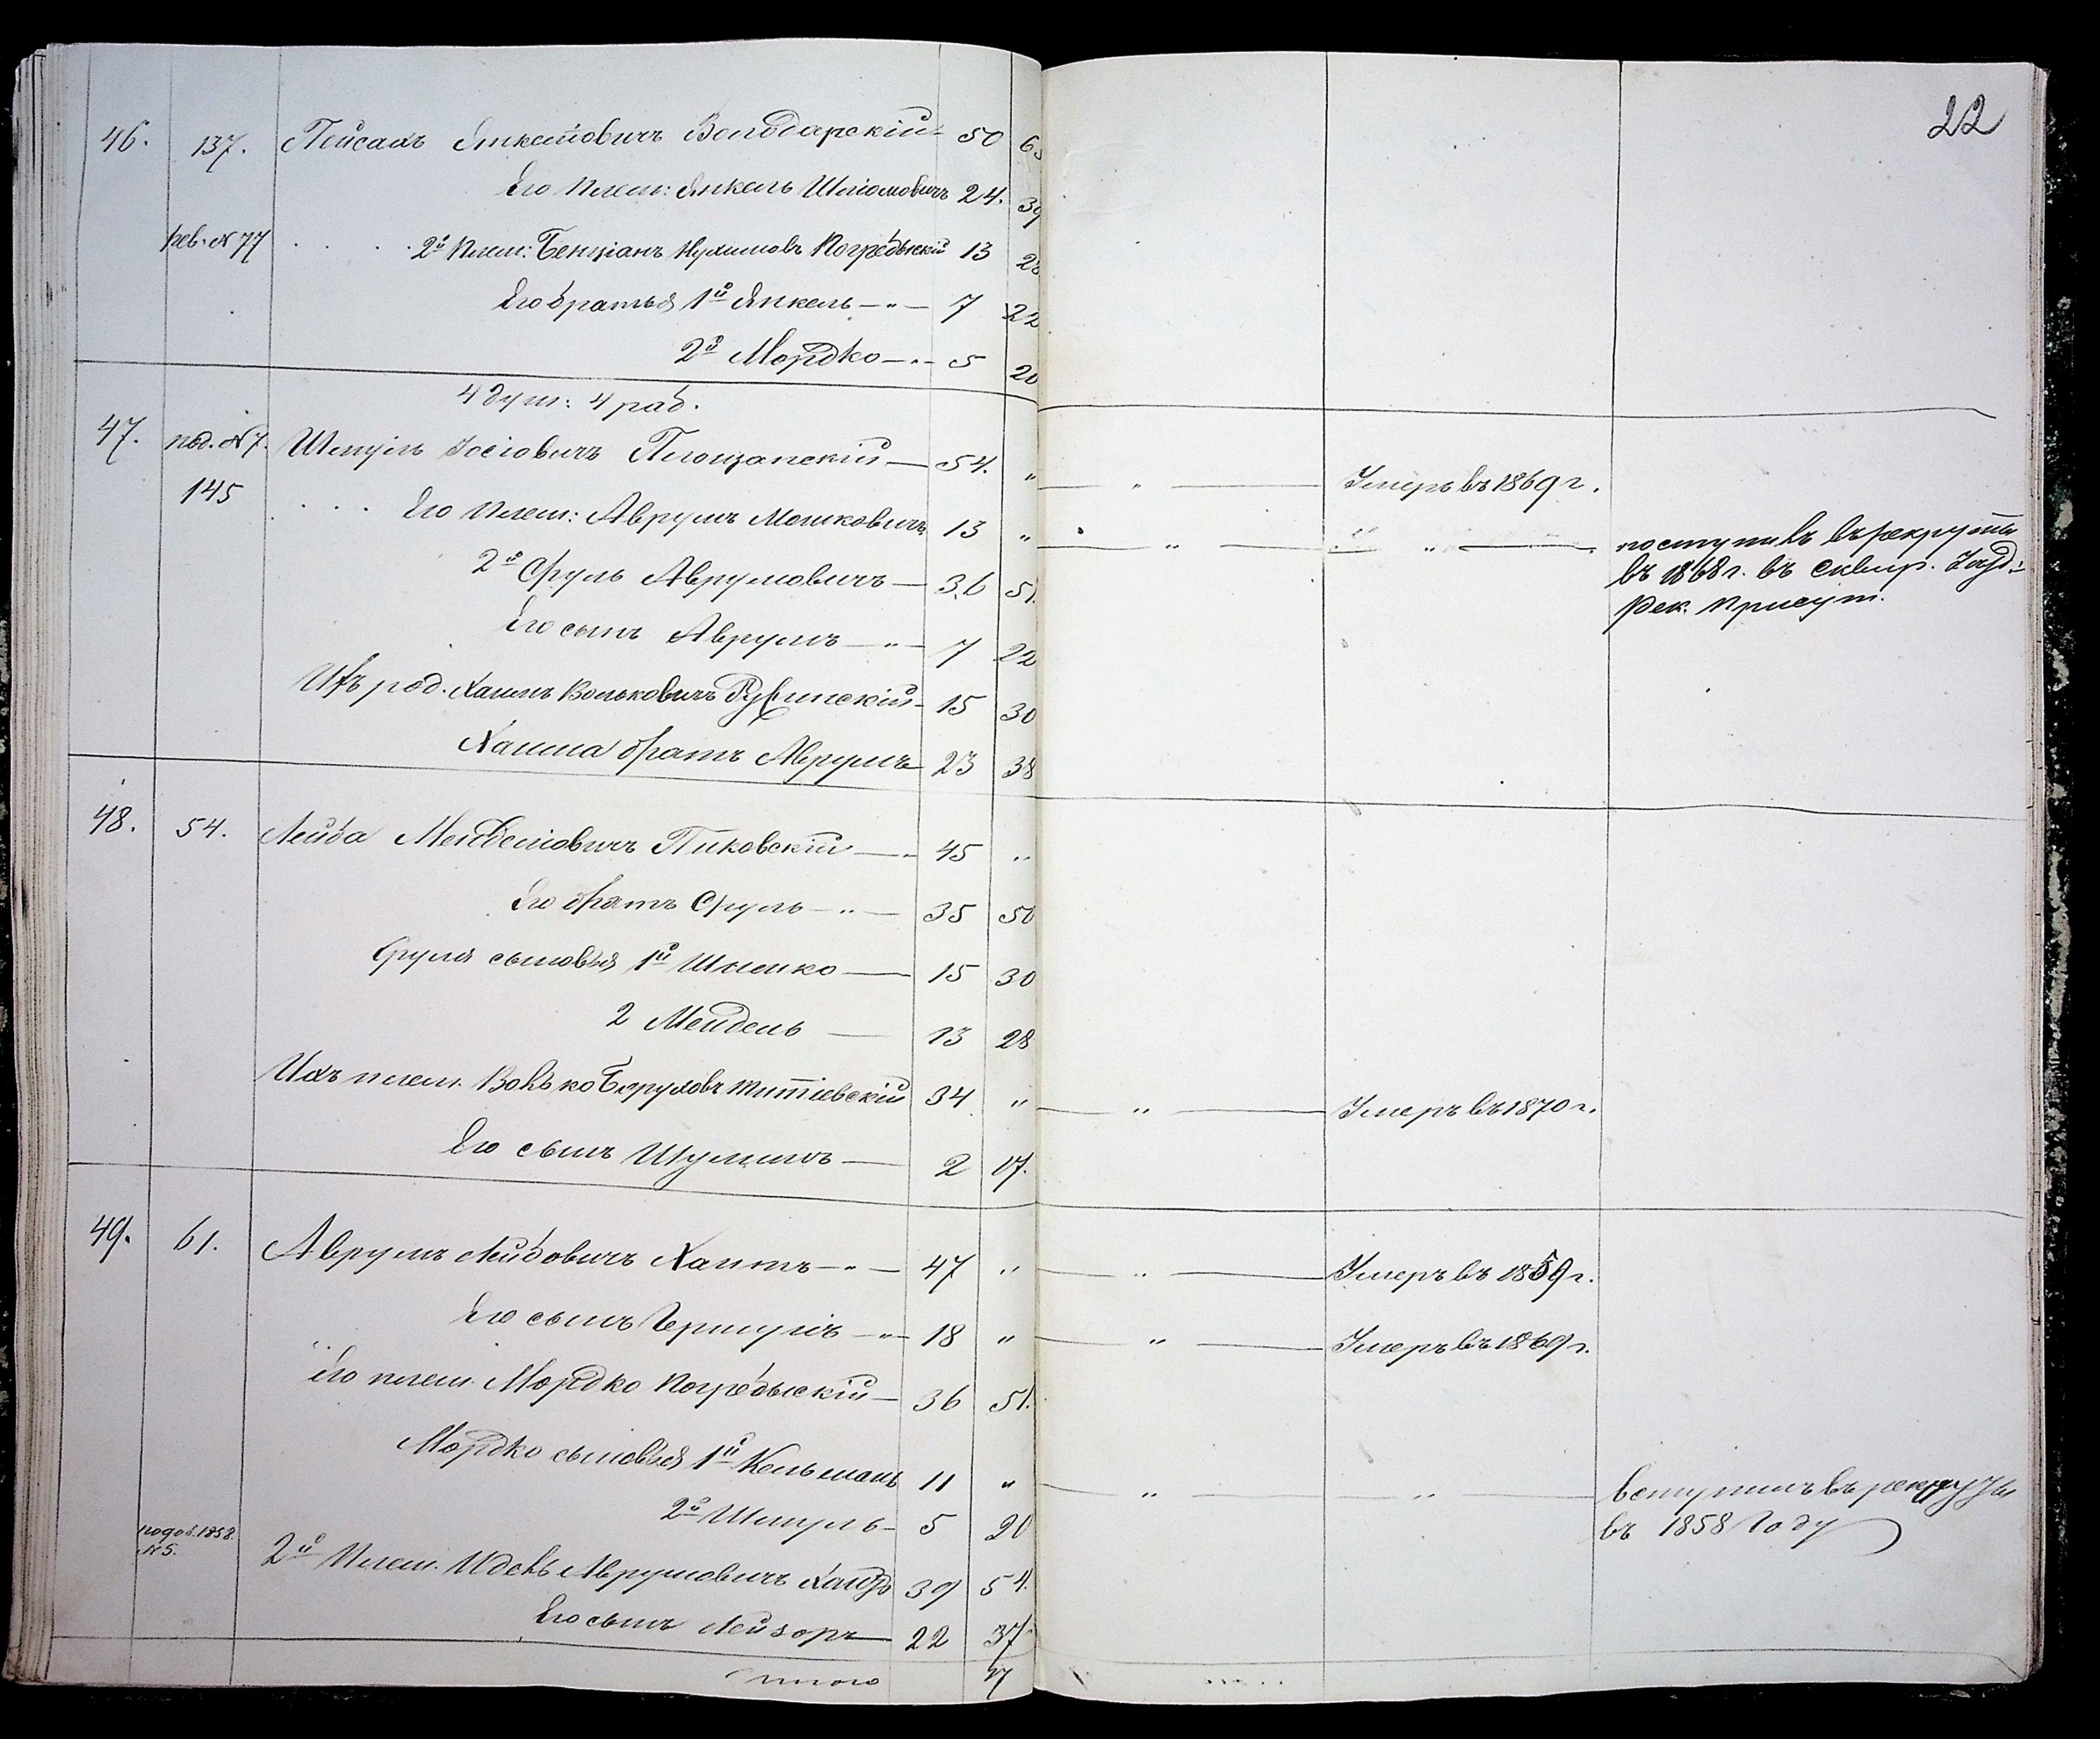 22
46. 137. Пейсахъ Янкелевичъ Володарскій 50 65
Его Плем: Янкель Шліомовичъ 24. 39
рев. №77 2й Плем: Бенціанъ Нухимовъ Погребыскій 13 28
Его братья 1й Янкель —"— 7 22
2й Мордко —"— 5 20
4 душ: 4 раб.
47. под. №7. Шмуль Іосіовичъ Площанскій — 54. " — " — Умеръ въ 1869 г.
145 Его Плем: Аврумъ Мошковичъ 13 " — " — " — поступилъ въ рекруты
въ 1868 г. въ Сквир. Уѣзд:
Рек. Присут.
2й Сруль Аврумовичъ — 36 51.
Его сынъ Аврумъ —"— 7 22
Ихъ род. Хаимъ Вольковичъ 15 30
Хаима братъ Аврумъ 23 38
48. 54. Лейба Менделіовичъ Пиковскій — 45 "
Его братъ Сруль —"— 35 50
Сруля сыновья 1й Шлемко — 15 30
2 Мендель — 13 28
Ихъ плем. Волько Боруховъ Титіевскій 34 " — " — Умеръ въ 1870 г.
Его сынъ Шулимъ — 2 17.
49. 61. Аврумъ Лейбовичъ Хаитъ —"— 47 " — " — Умеръ въ 1859 г.
Его сынъ Гершулъ —"— 18 " — " — Умеръ въ 1869 г.
Его плем. Мордко Погребыскій — 36 51.
Мордко сыновья 1й Кельманъ 11 " — " — " — вступилъ въ рекруты
въ 1858 Году
2й Шмуль — 5 20
1858. №5. 2й Плем. Идель Аврумовичъ 39 54.
Его сынъ Лейзоръ — 22 37
Итого 17